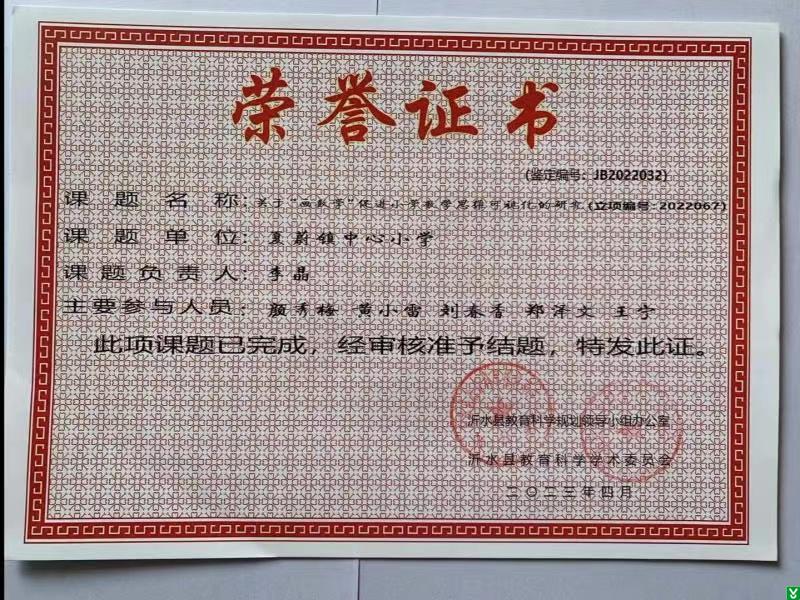 荣誉证书
(鉴定编号：JB2022032)
课题名称：关于"画数学"促进小学数学思维可视化的研究(立项编号：2022067)
课题单位：夏蔚镇中心小学
课题负责人：李晶
主要参与人员：颜秀梅 黄小雷 刘春香 郑洋文 王宁
此项课题已完成，经审核准予结题，特发此证。
沂水县教育科学规划领导小组办公室
沂水县教育科学学术委员会
二〇二三年四月